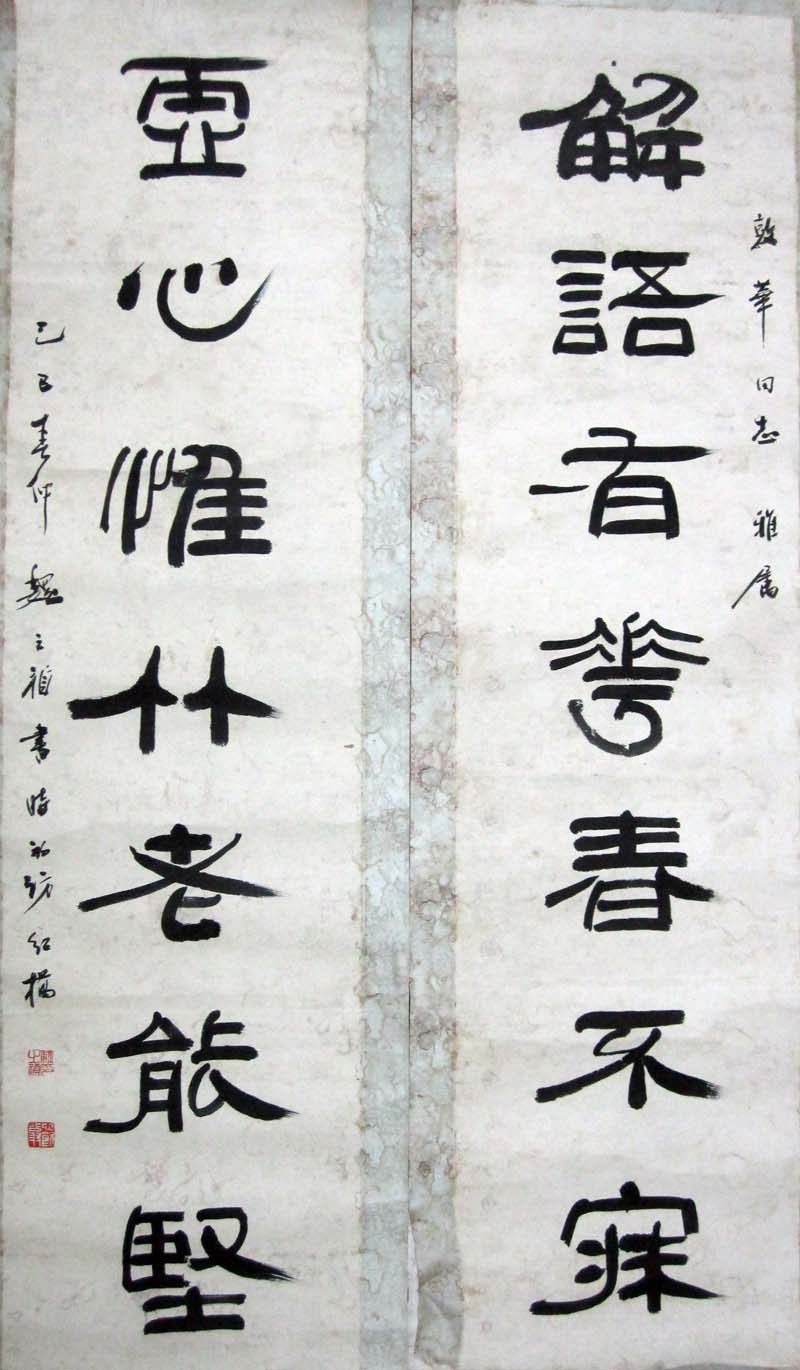 敦華同志 雅屬
解語有華春不寐
虛心惟竹老能堅
己巳春仲 魏之禎書時初訪紅橋